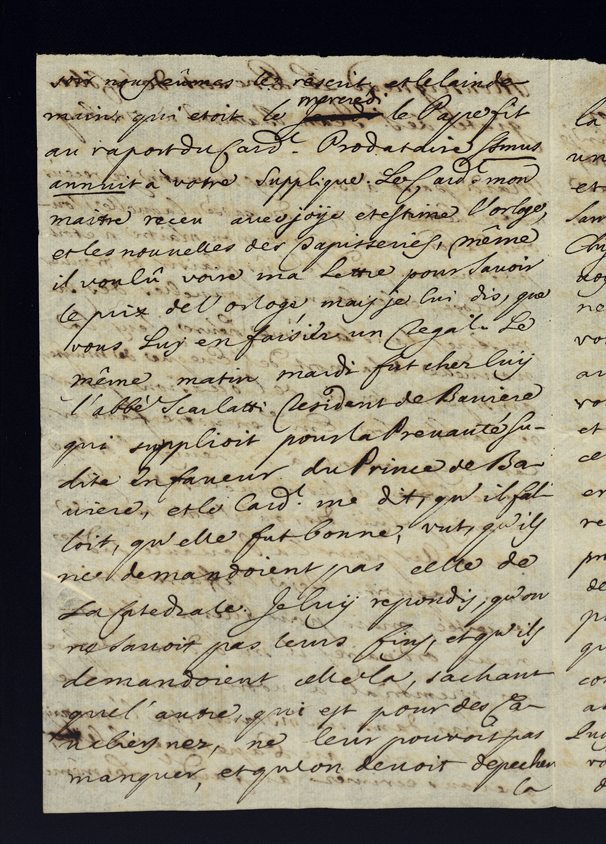 soir nous eûmes le rescrit, et le lende
main, qui etoit le mercredi le Pape fit
au raport du Card.l Prodataire somus
annuit à votre Supplique. Le Card.l mon
maitre receu avec joÿe et estime l'orloge,
et les nouvelles des tapisseries, même
il voulû voire ma Lettre pour savoir
le prix de l'orloge mais je lui dis, que
vous Luy en faisiés un Regal. Le
même matin mardi fut cher luy
l'abbé Scarlatti Resident de Baviere
qui supplioit pour la Prevauté Su-
dite en faveur du Prince de Ba-
viere, et le Card.l me dit, qu'il fal-
loit, qu'elle fut bonne, vut, qu'ils
ne demandoient pas celle de
La Catedrale. Je luy repondis, qu'on
ne savoit pas leurs fins, et qu'ils
demandoient celle la, sachant
que l'autre, qui est pour des Ca-
valiers nez, ne leur pouvoit pas
manquer, et qu'on devoit depecher
la
la
un
et
ne
vo
au
vo
et
ce
er
re
pr
de
pl
qu
co
a
Luy
vo
d